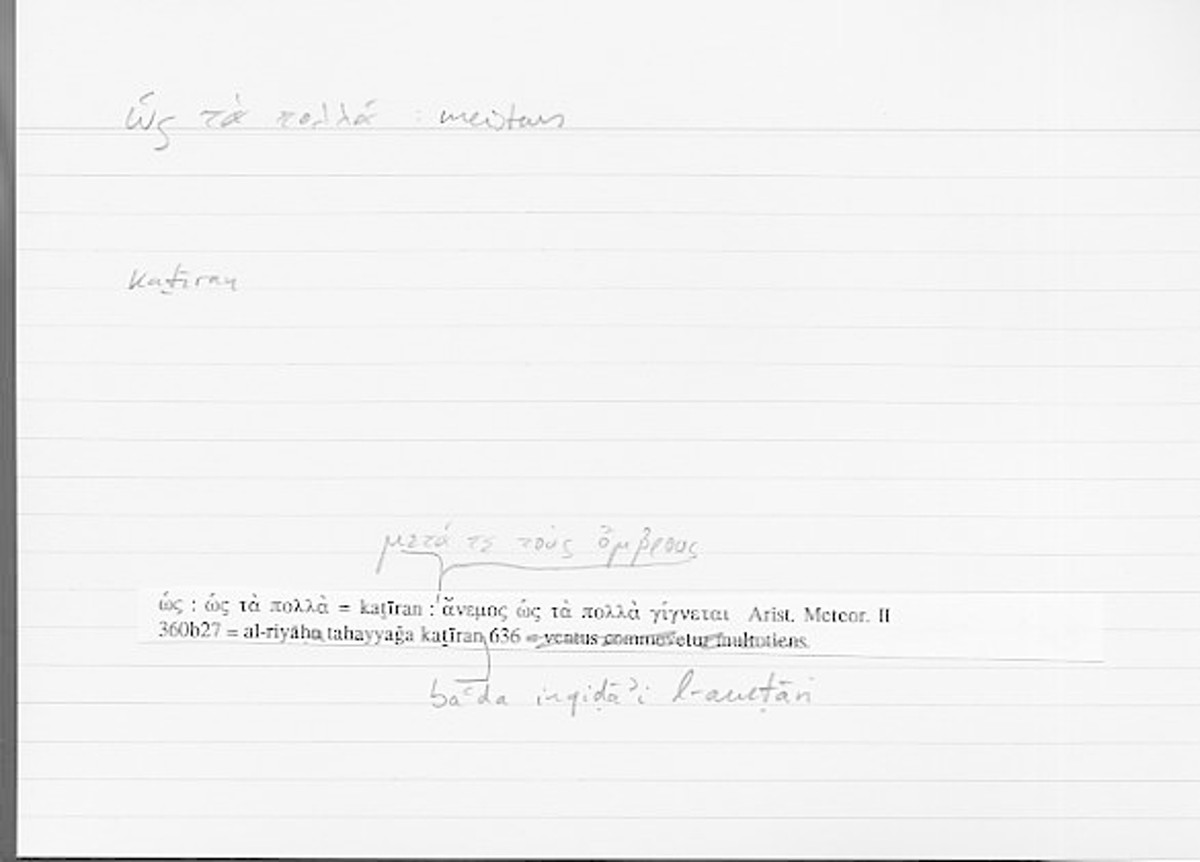 ὡς τὰ πολλά : meistens
kaṯīran
μετά τε τοὺς ὄμβρους
ὡς : ὡς τὰ πολλὰ = kaṯīran : ἄνεμος ὡς τὰ πολλὰ γίγνεται Arist. Meteor. II
360b27 = al-riyāḥa tahayyaǧa kaṯīran 636 = ventus commovetur multotiens.
baʿda inqiḍāʾi l-amṭāri